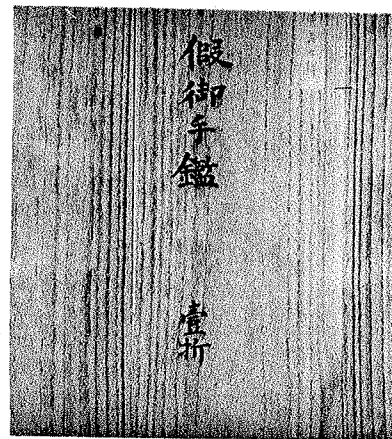 假御手鑑
壹折